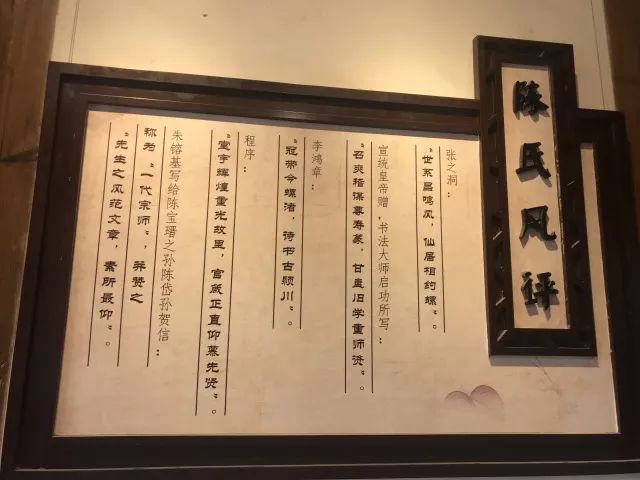 陈氏风评
张之洞：
“世系昌鸣凤，仙居相约螺”。
宣统皇帝赠，书法大师启功所写：
“召奭稽谋尊寿耇，甘盘旧学重师资”。
李鸿章：
“冠带今螺渚，诗书古颍川”。
程序：
“堂宇辉煌重光故里，官箴正直仰慕先贤”。
朱镕基写给陈宝瑨之孙陈岱孙贺信：
称为“一代宗师”，并赞之
“先生之风范文章，素所最仰”。